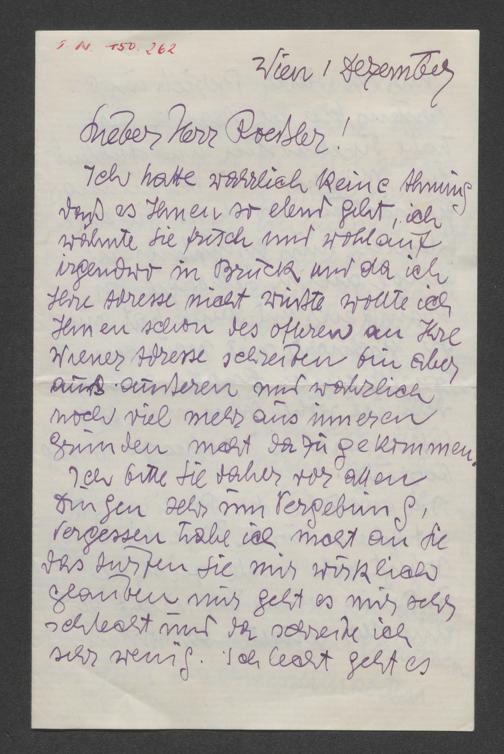 I. N. 150.262
Wien 1 Dezember
Lieber Herr Roessler!
Ich hatte wahrlich keine Ahnung
daß es Ihnen so elend geht, ich
wähnte Sie frisch und wohlauf
irgendwo in Bruck und da ich
Ihre Adresse nicht wußte wollte ich
Ihnen schon des öfteren an Ihre
Wiener Adresse schreiben bin aber
aus äußeren und wahrlich
noch viel mehr aus inneren
Gründen nicht dazu gekommen.
Ich bitte Sie daher vor allen
Dingen sehr um Vergebung,
Vergessen habe ich nicht an Sie
das dürfen Sie mir wirklich
glauben nur geht es mir sehr
schlecht und da schreibe ich
sehr wenig. Schlecht geht es